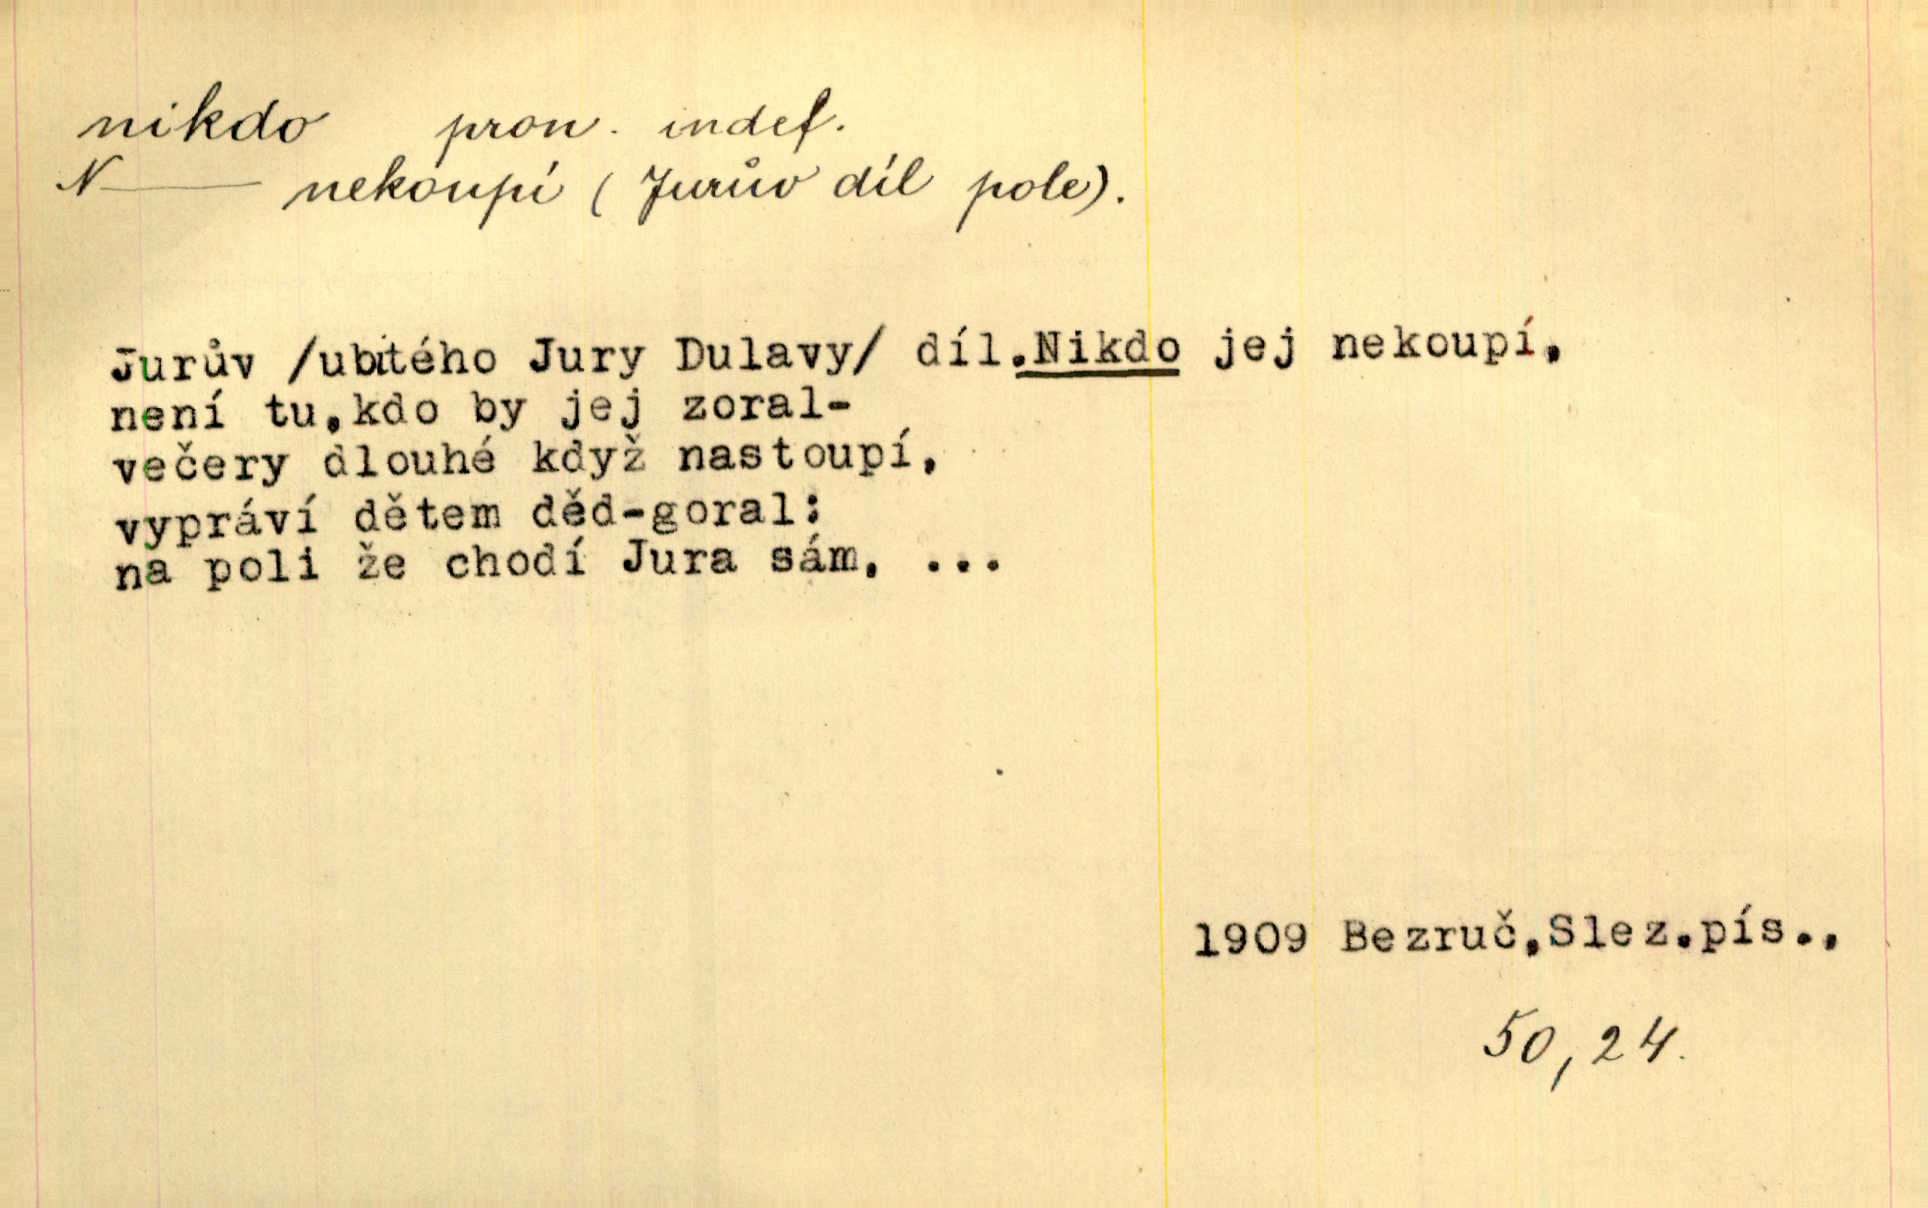 nikdo pron. indef.
N—— nekoupí (Jurův díl pole).
Jurův /ubitého Jury Dulavy/ díl.Nikdo jej nekoupí,
není tu,kdo by jej zoral-
večery dlouhé když nastoupí,
vypráví dětem děd-goral:
na poli že chodí Jura sám, ...
1909 Bezruč,Slez.pís.,
50,24.